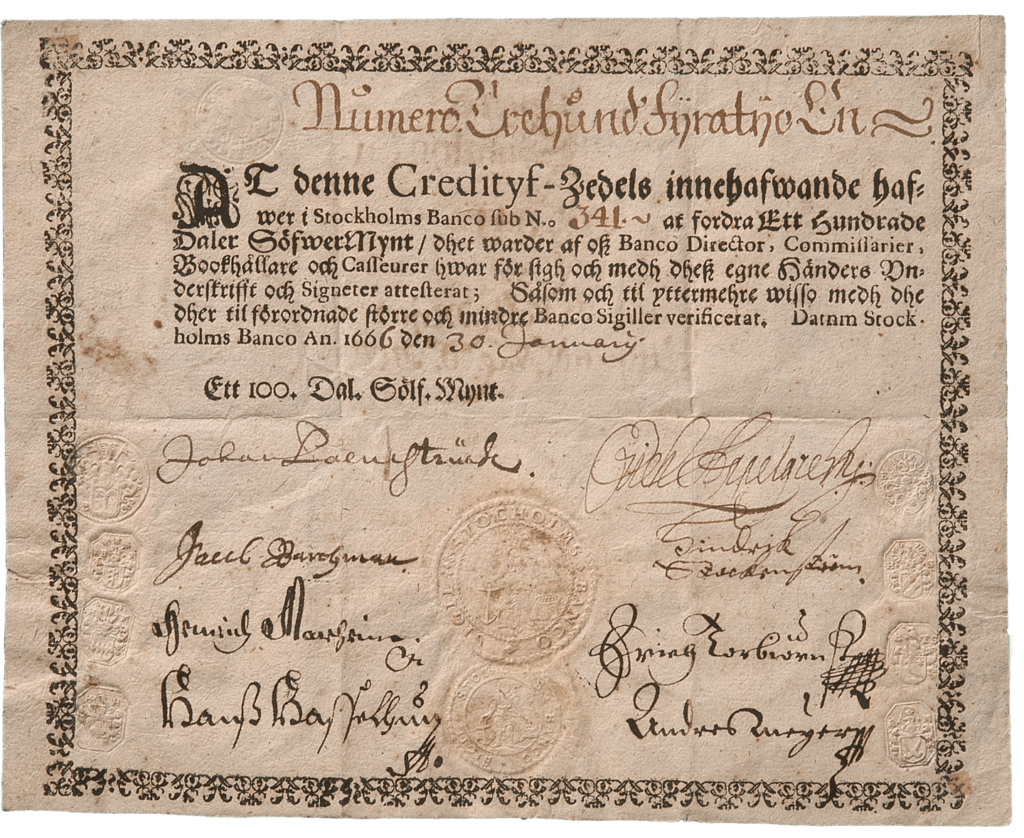 Numero. Trehund Fÿratÿo En
AT denne Credityf-Zedels innehafwande haf-
wer i Stockholms Banco sub N.o 341. at fordra Ett Hundrade
Daler SöfwerMynt / dhet warder af oß Banco Director, Commissarier,
Bookhållare och Casseurer hwar för sigh och medh dheß egne Händers Vn-
derskrifft och Signeter attesterat; Såsom och til yttermehre wisso medh dhe
dher til förordnade större och mindre Banco Sigiller verificerat. Datum Stock-
holms Banco An. 1666 den 30. January
Ett 100. Dal. Sölf. Mynt.
Johan
Jacob Barchman
Hindrik
Stockenström
STOCHOLMS BANCO
Henrich
Erich Torbiörn
Hanß Hasselhun
Andres meyer